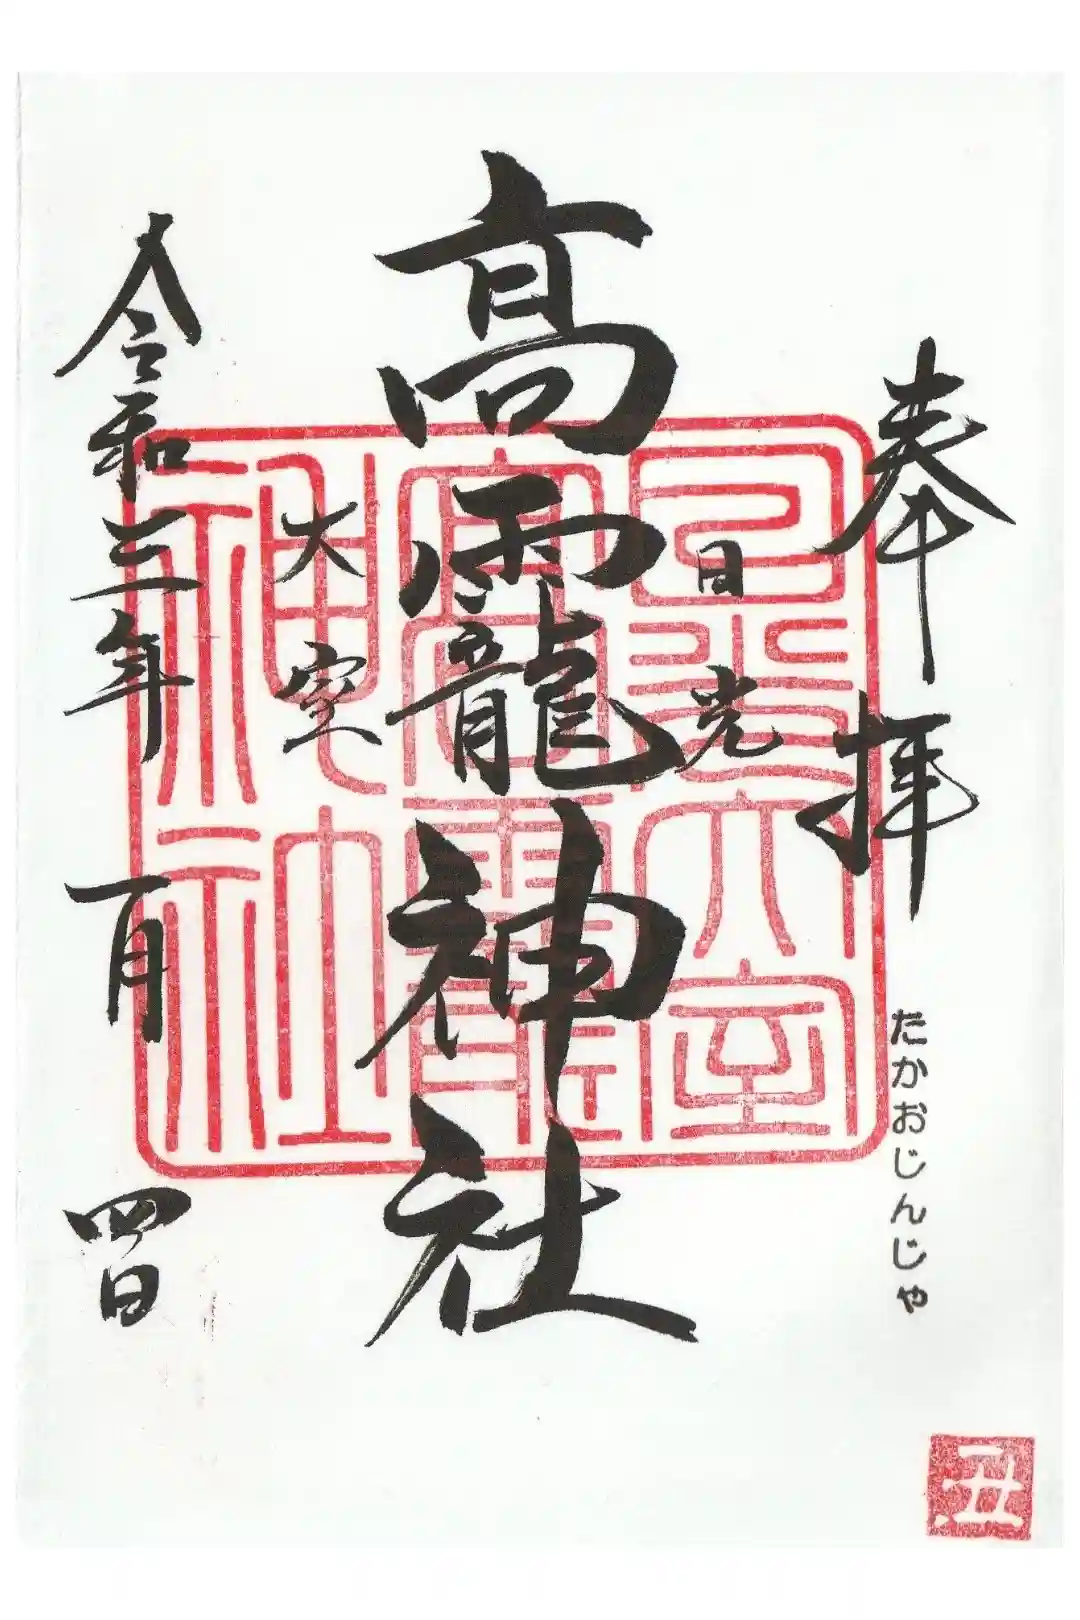 奉拝
たかおじんじゃ
日光
高靇神社
大室
令和三年一月四日
日光大室
高靇
神社
丑